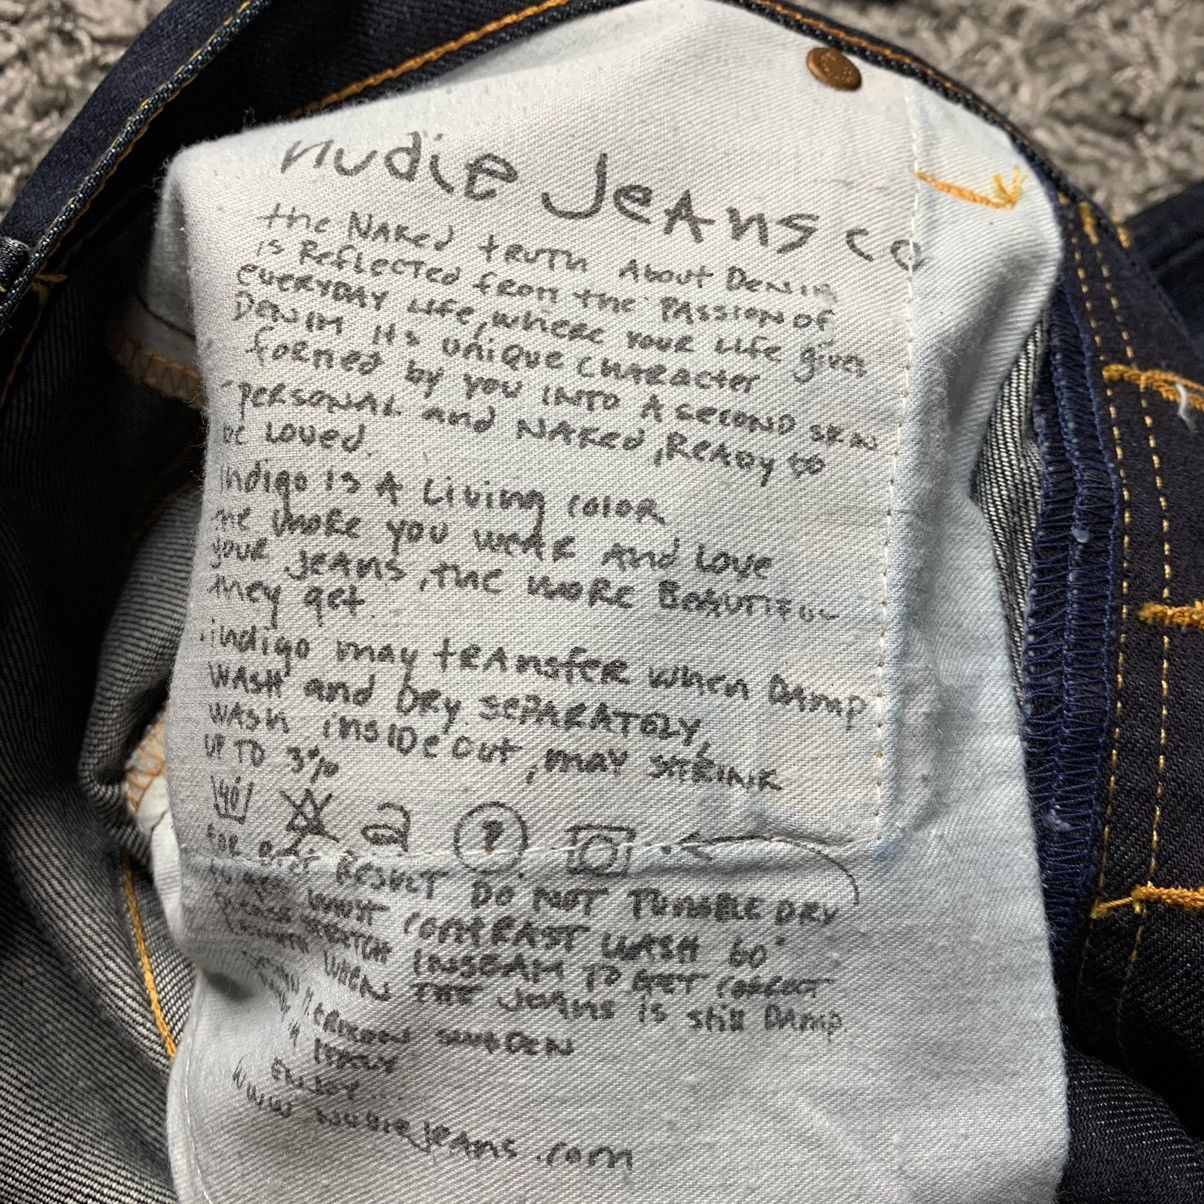 nudie Jeans co
the NAKed tRUTH About DeNIM
is ReFLECTED from the PASSION OF
eveRYDAY LIFE, where YOUR LIFE gives
DeNIM its UNiQUE CHARACter
formed by you INTO A second SKIN
PERSONAL and NAKed, ReADy to
be Loved.
Indigo IS A Living COLOR
the more you weAR And Love
your JEANS, the more BEAUTIFUL
they get.
.indigo may tRAnsfer when DAmp
WASH and DRY SEPARATELY,
WASH iNSIDE out, mAY SHRINK
UP TO 3%
40 P
FOR BEST RESULT DO NOT TUMBLE DRY
TO GET MOST CONTRAST WASH 60°
PLEASE STRETCH INSEAM TO GET CORRECT
LENGTH WHEN THE JeANS is still DAmp.
SWEDEN
ITALY
ENJOY...
WWW.NUDIEJEANS.com